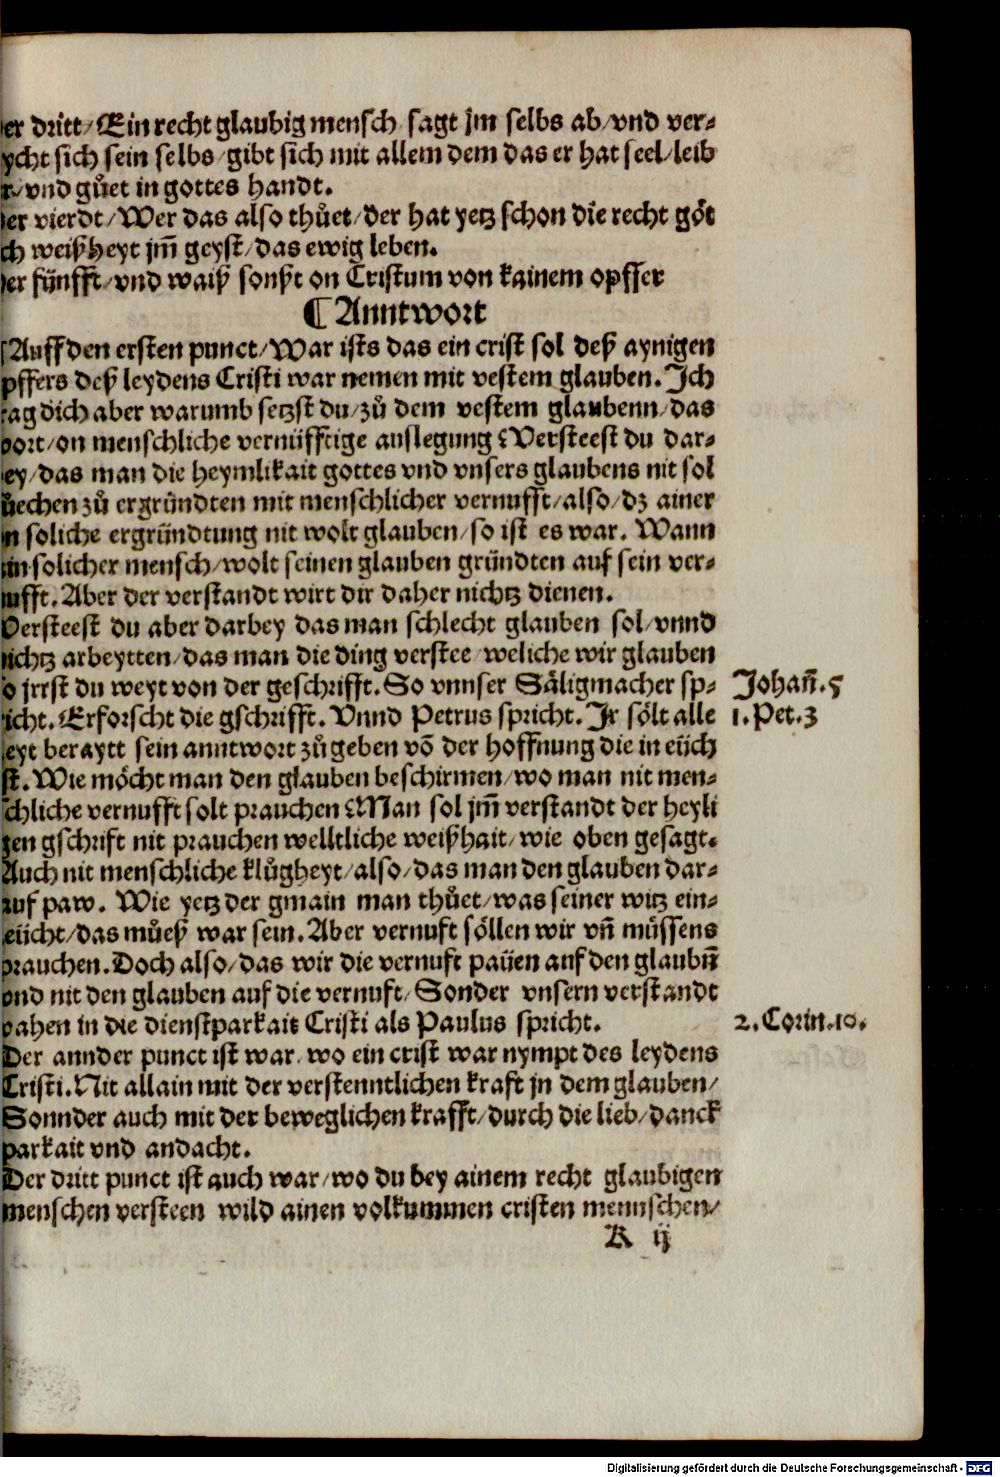 er dritt/Ein recht glaubig mensch sagt jm selbs ab/vnd ver-
ycht sich sein selbs/gibt sich mit allem dem das er hat seel/leib
r/vnd guͤet in gottes handt.
er vierdt/Wer das also thuͤet/der hat yetz schon die recht goͤt
ch weißheyt jm̄ geyst/das ewig leben.
er fünfft/vnd waiß sonst on Cristum von kainem opffer
¶Anntwort
Auff den ersten punct/War ists das ein crist sol deß aynigen
pffers deß leydens Cristi war nemen mit vestem glauben. Ich
rag dich aber warumb setzst du/zuͦ dem vestem glaubenn/das
wort/on menschliche vernüfftige auslegung? Versteest du dar-
ey/das man die heymlikait gottes vnd vnsers glaubens nit sol
uͤechen zuͦ ergründten mit menschlicher vernufft/also/dz ainer
n soliche ergründtung nit wolt glauben/so ist es war. Wann
in solicher mensch/wolt seinen glauben gründten auf sein ver-
nufft. Aber der verstandt wirt dir daher nichtz dienen.
Versteest du aber darbey das man schlecht glauben sol/vnnd
nichtz arbeytten/das man die ding verstee/weliche wir glauben
o jrrst du weyt von der geschrifft. So vnnser Säligmacher sp- Johañ.5
icht. Erforscht die gschrifft. Vnnd Petrus spricht. Ir soͤlt alle 1.Pet.3
eyt beraytt sein anntwort zuͦ geben võ der hoffnung die in eüch
st. Wie moͤcht man den glauben beschirmen/wo man nit men-
schliche vernufft solt prauchen? Man sol jm̄ verstandt der heyli
gen gschrift nit prauchen welltliche weißhait/wie oben gesagt.
Auch nit menschliche kluͦgheyt/also/das man den glauben dar-
uf paw. Wie yetz der gmain man thuͤet/was seiner witz ein-
leücht/das muͤeß war sein. Aber vernuft soͤllen wir vñ müssens
prauchen. Doch also/das wir die vernuft paüen auf den glaubñ
vnd nit den glauben auf die vernuft/Sonder vnsern verstandt
vahen in die dienstparkait Cristi als Paulus spricht. 2.Corin.10.
Der annder punct ist war/wo ein crist war nympt des leydens
Cristi. Nit allain mit der verstenntlichen kraft jn dem glauben/
Sonnder auch mit der beweglichen krafft/durch die lieb/danck
parkait vnd andacht.
Der dritt punct ist auch war/wo du bey ainem recht glaubigen
menschen versteen wild ainen volkummen cristen mennschen/
K ij
Digitalisierung gefördert durch die Deutsche Forschungsgemeinschaft - DFG